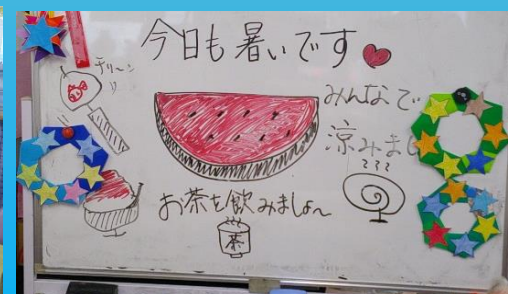 今日も暑いです
チリーン
みんなで
涼みまし
お茶を飲みましょ〜
茶